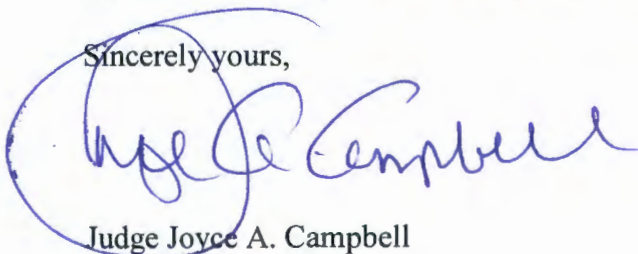 Sincerely yours,
Joyce A Campbell
Judge Joyce A. Campbell